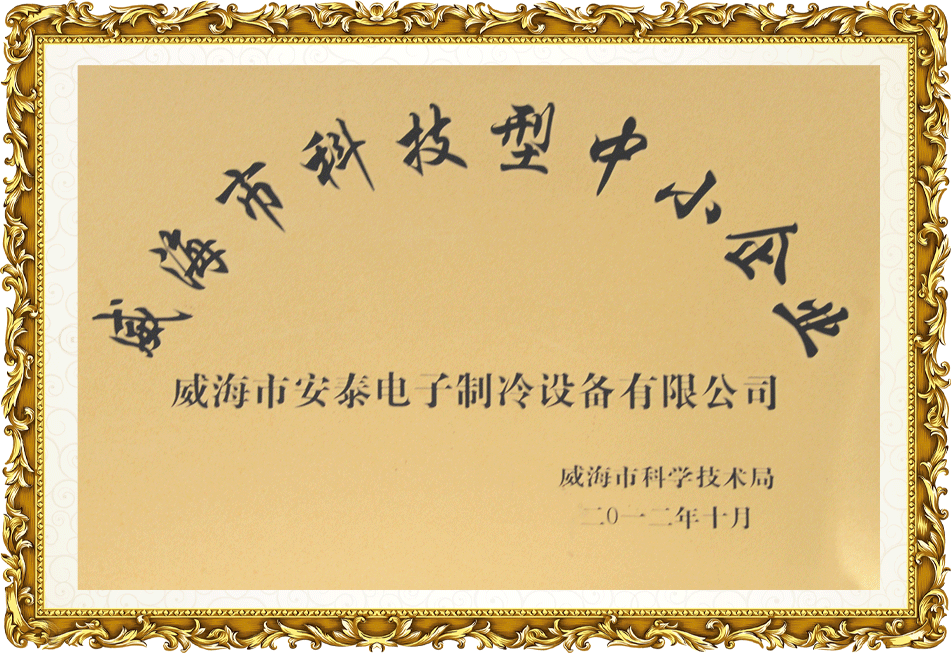 威海市科技型中小企业
威海市安泰电子制冷设备有限公司
威海市科学技术局
二0一二年十月